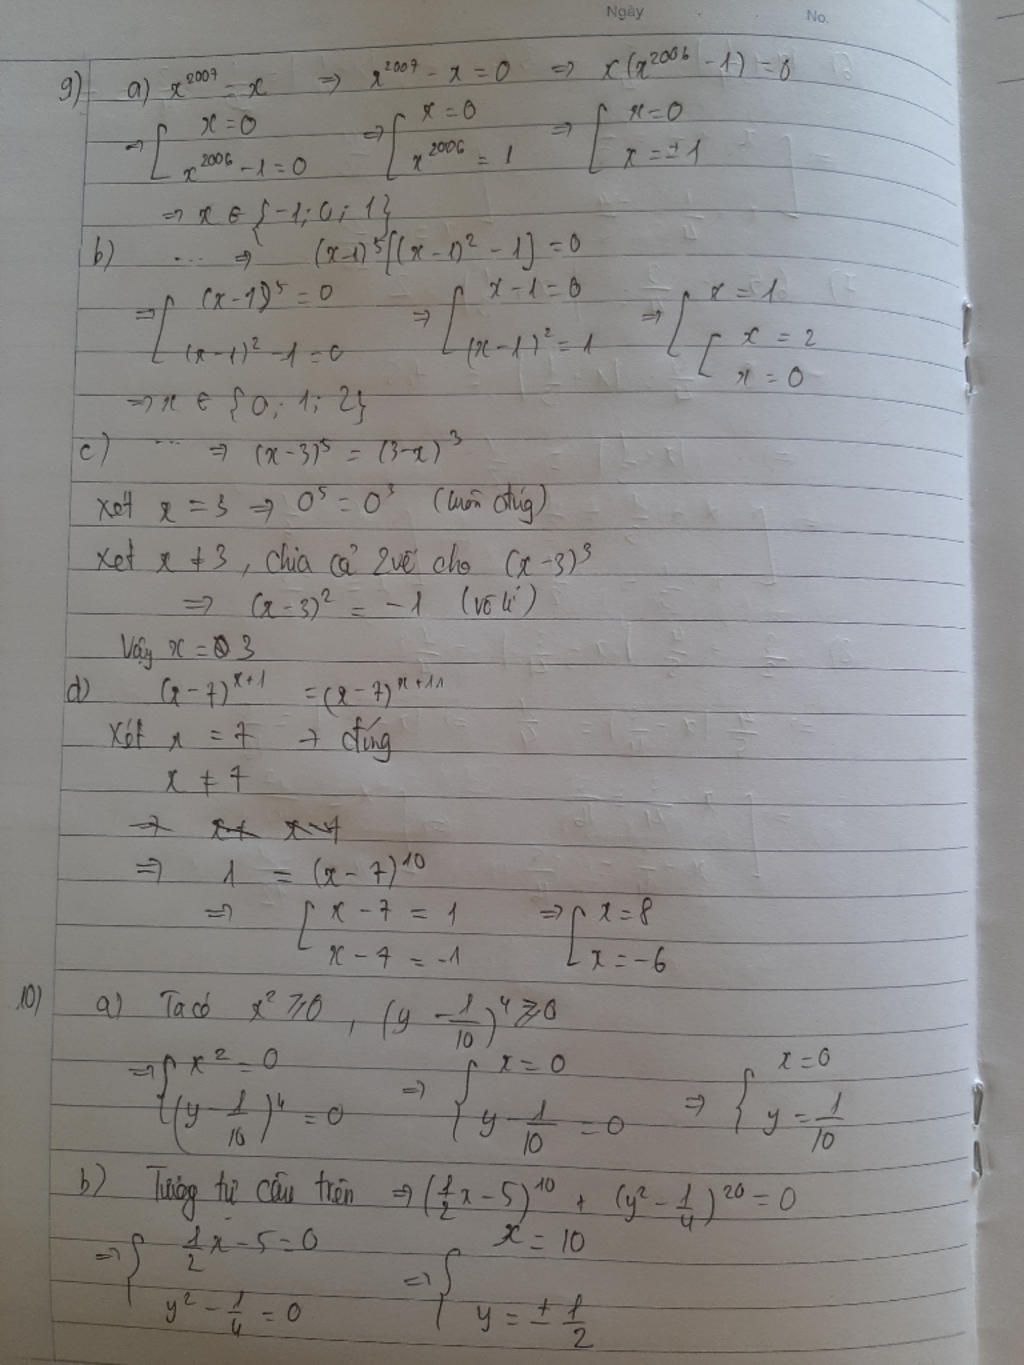 Ngày No.
9) a) x²⁰⁰⁷ = x ⇒ x²⁰⁰⁷ - x = 0 ⇒ x(x²⁰⁰⁶ - 1) = 0
⇒ [ x = 0 ⇒ [ x = 0 ⇒ [ x = 0
x²⁰⁰⁶ - 1 = 0 x²⁰⁰⁶ = 1 x = ±1
⇒ x ∈ {-1; 0; 1}
b) ... ⇒ (x-1)⁵[(x-1)² - 1] = 0
⇒ [ (x-1)⁵ = 0 ⇒ [ x - 1 = 0 ⇒ [ x = 1
(x-1)² - 1 = 0 (x-1)² = 1 [ x = 2
x = 0
⇒ x ∈ {0; 1; 2}
c) ... ⇒ (x-3)⁵ = (3-x)³
Xét x = 3 ⇒ 0⁵ = 0³ (luôn đúng)
Xét x ≠ 3, chia cả 2 vế cho (x-3)³
⇒ (x-3)² = -1 (vô lí)
Vậy x = 3
d) (x-7)ˣ⁺¹ = (x-7)ˣ⁺¹¹
Xét x = 7 → đúng
x ≠ 7
⇒ 1 = (x-7)¹⁰
⇒ [ x - 7 = 1 ⇒ [ x = 8
x - 7 = -1 x = -6
10) a) Ta có x² ≥ 0, (y - 1/10)⁴ ≥ 0
⇒ { x² = 0 ⇒ { x = 0 ⇒ { x = 0
(y - 1/10)⁴ = 0 y - 1/10 = 0 y = 1/10
b) Tương tự câu trên ⇒ (1/2x - 5)¹⁰ + (y² - 1/4)²⁰ = 0
⇒ { 1/2x - 5 = 0 ⇒ { x = 10
y² - 1/4 = 0 y = ± 1/2